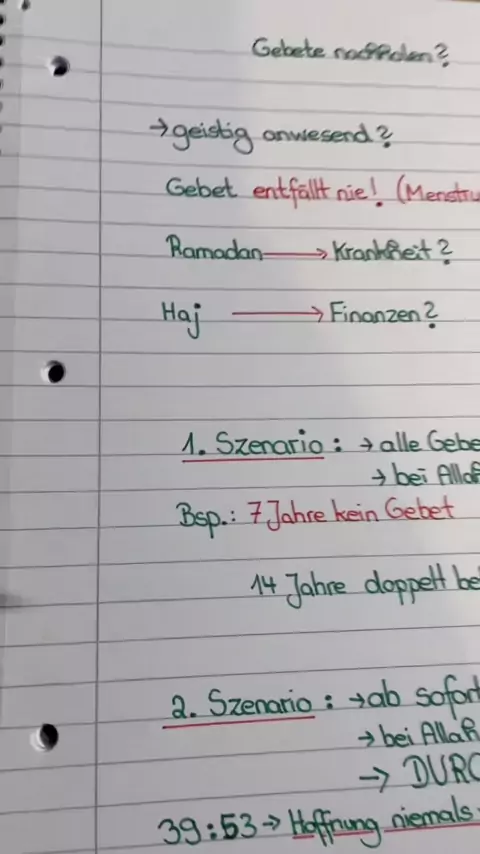 Gebete nachholen?
→ geistig anwesend?
Gebet entfällt nie! (Menstru
Ramadan → Krankheit?
Haj → Finanzen?
1. Szenario: → alle Gebe
→ bei Allah
Bsp.: 7 Jahre kein Gebet
14 Jahre doppelt be
2. Szenario: → ab sofort
→ bei Allah
→ DURC
39:53 → Hoffnung niemals